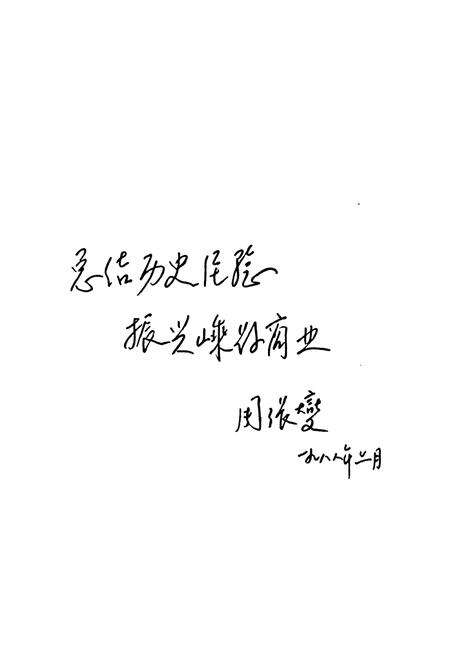 总结历史经验
振兴嵊县商业
周张燮
一九八八年二月